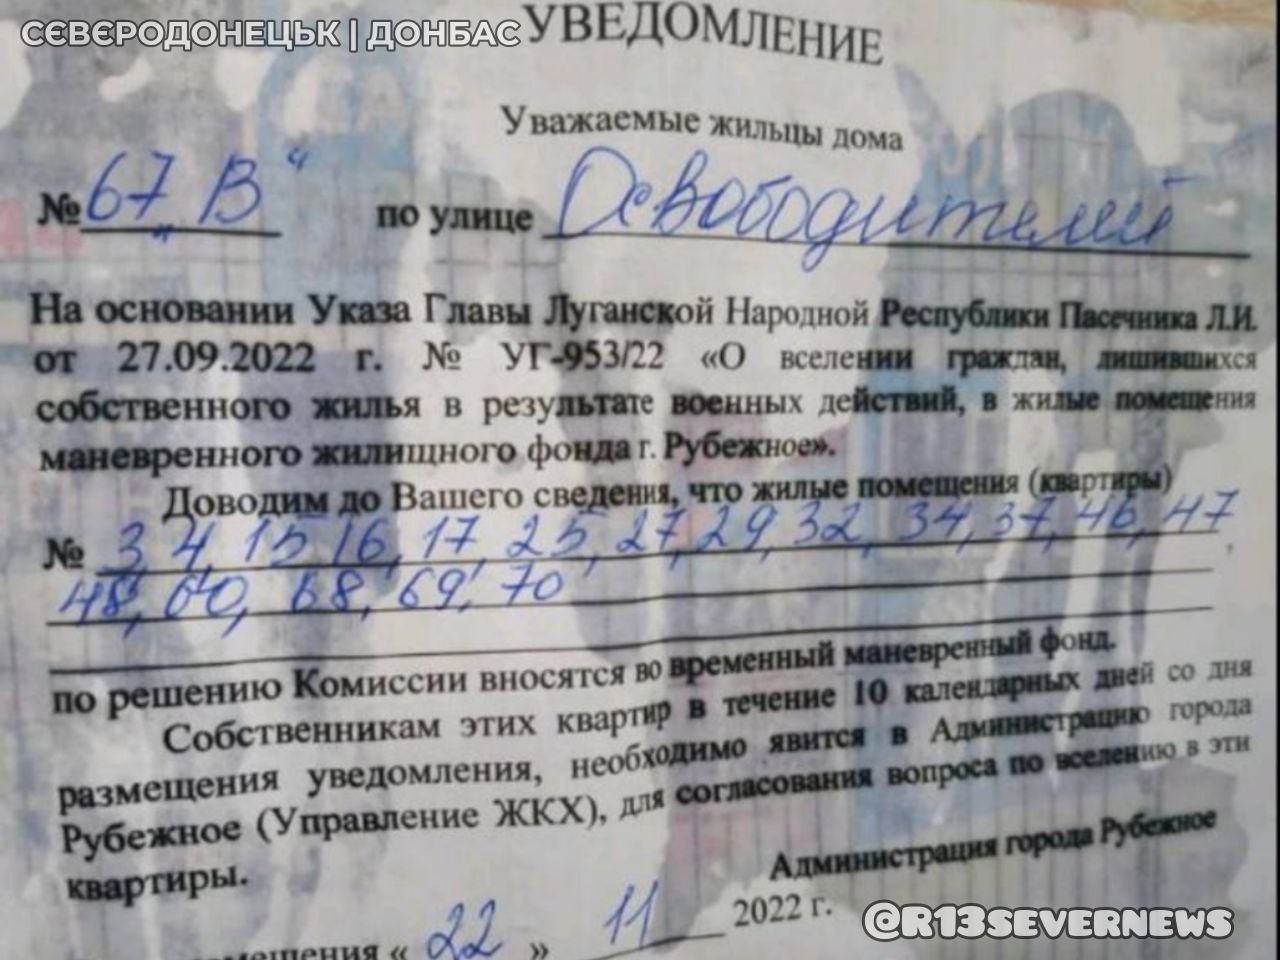 СЄВЄРОДОНЕЦЬК | ДОНБАС
УВЕДОМЛЕНИЕ
Уважаемые жильцы дома
№ 67 „В“ по улице Освободителей
На основании Указа Главы Луганской Народной Республики Пасечника Л.И.
от 27.09.2022 г. № УГ-953/22 «О вселении граждан, лишившихся
собственного жилья в результате военных действий, в жилые помещения
маневренного жилищного фонда г. Рубежное».
Доводим до Вашего сведения, что жилые помещения (квартиры)
№ 3, 4, 15, 16, 17, 25, 27, 29, 32, 34, 37, 46, 47
48, 60, 68, 69, 70
по решению Комиссии вносятся во временный маневренный фонд.
Собственникам этих квартир в течение 10 календарных дней со дня
размещения уведомления, необходимо явится в Администрацию города
Рубежное (Управление ЖКХ), для согласования вопроса по вселению в эти
квартиры.
Администрация города Рубежное
« 22 » 11 2022 г.
@R13SEVERNEWS